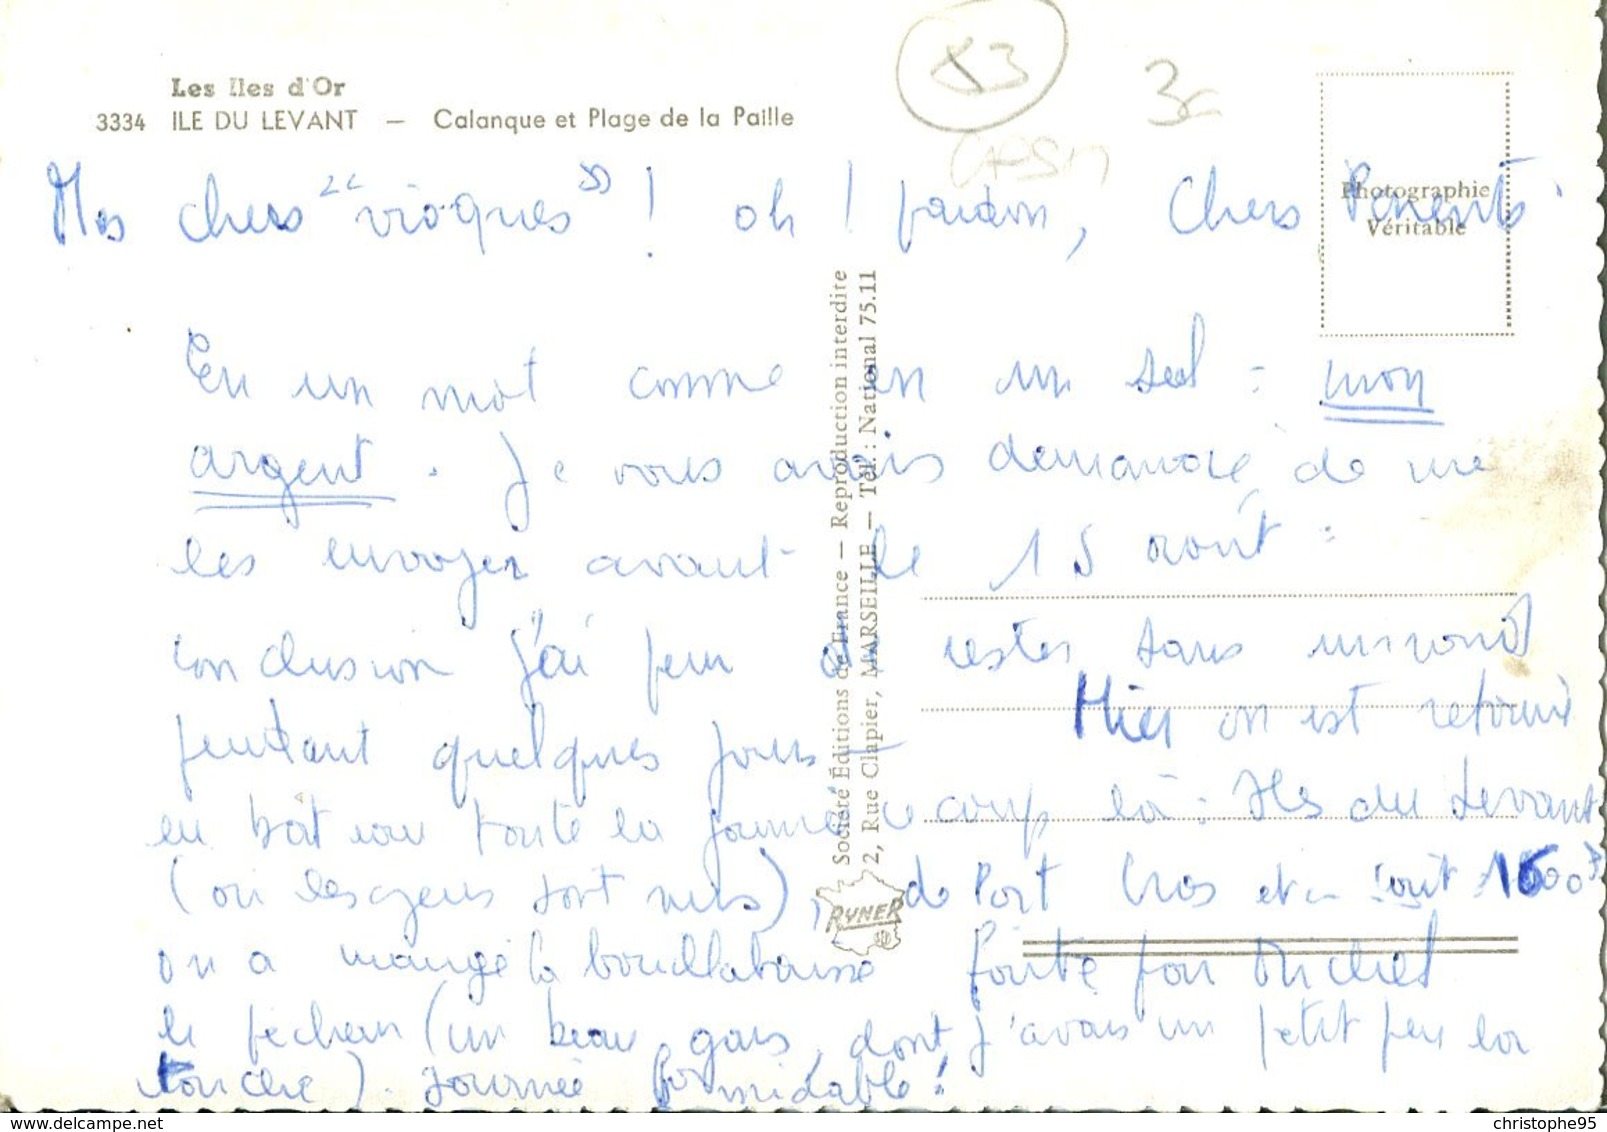 Les Iles d'Or
3334 ILE DU LEVANT — Calanque et Plage de la Paille
X3
3€
Photographie
Véritable
Mes chers "vioques" ! oh ! pardon, Chers Parents
En un mot comme en un seul : mon
argent. Je vous avais demandé de me
les envoyer avant le 15 août :
conclusion j'ai peur de rester sans un rond
pendant quelques jours — Hier on est retourné
en bateau toute la journée ce coup là : Iles du Levant
(où les gens sont nus), de Port Cros et coût 1600F
on a mangé la bouillabaisse faite par Michel
le pêcheur (un beau gars, dont j'avais un petit peu la
touche). Journée formidable !
Société Éditions de France — Reproduction interdite
2, Rue Clapier, MARSEILLE — Tél. : National 75.11
RYNER
delcampe.net
christophe95